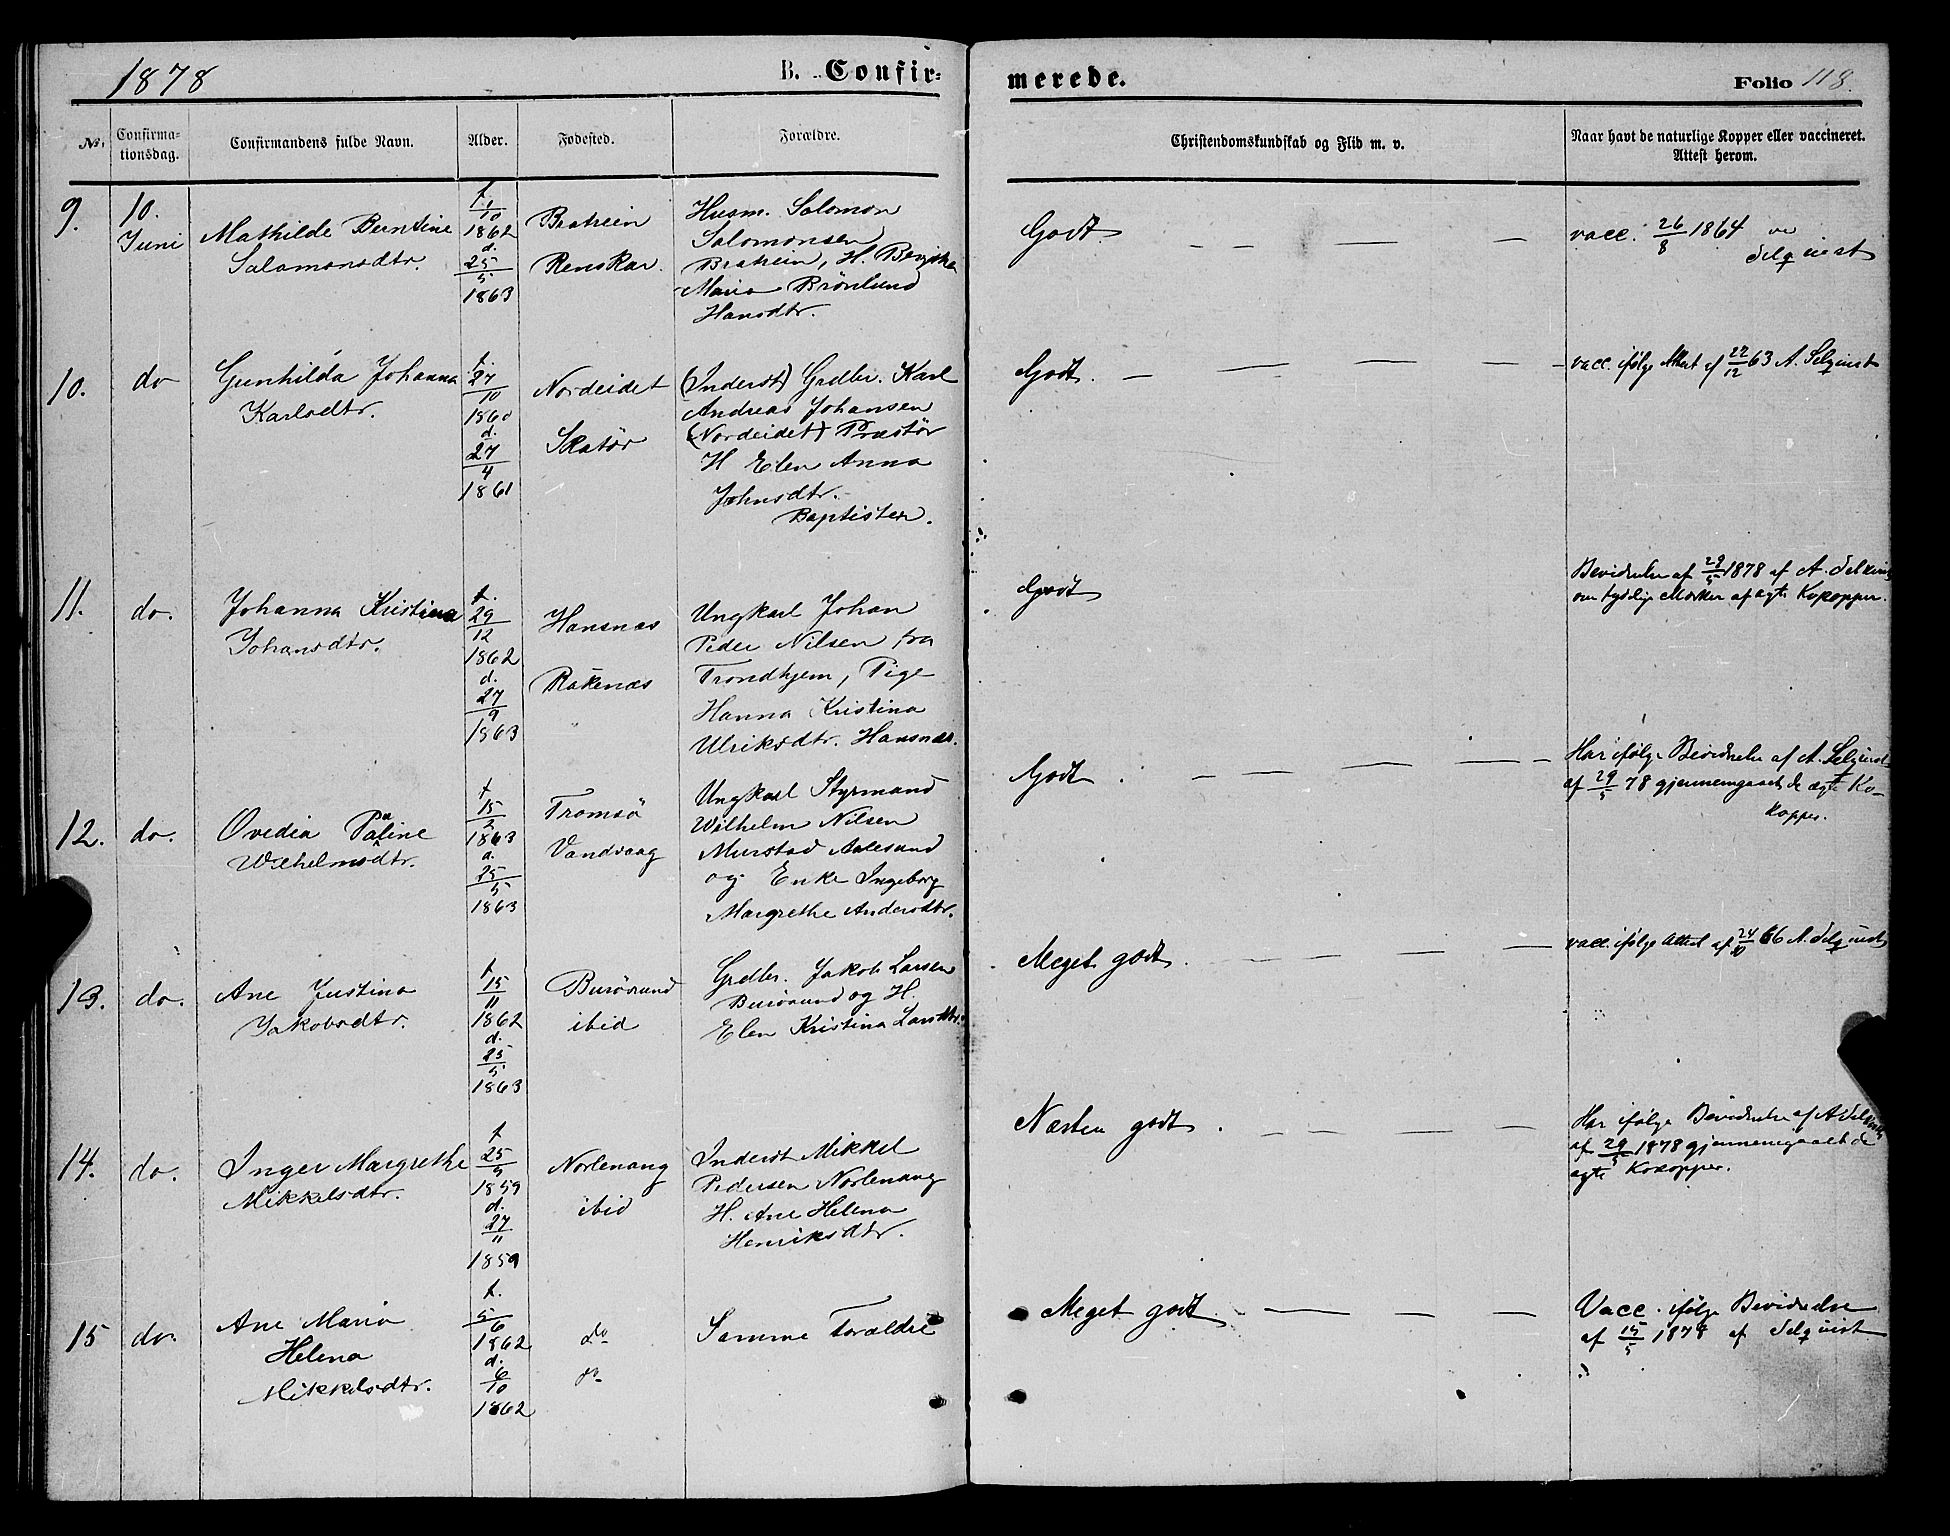 1878
B. Confir-
merede.
Folio 118.
No.
Confirma-
tionsdag.
Confirmandens fulde Navn.
Alder.
Fødested.
Forældre.
Christendomskundskab og Flid m. v.
Naar havt de naturlige Kopper eller vaccineret.
Attest herom.
9.
10.
Juni
Mathilde Berntine
Salamonsdtr.
f. 1/10
1862
d.
25/5
1863
Bratrein
Renskar.
Husm. Salomon
Salomonsen
Bratrein, H.
Maria Brönlund
Hansdtr.
Godt.
vacc. 26/8 1864
Selqvist
10.
do
Gunhilda Johanna
Karlsdtr.
f.
27/10
1860
d.
27/4
1861
Nordeidet
Skatör
(Inderst) Grdbr. Karl
Andreas Johansen
(Nordeidet) Præstör
H Elen Anna
Johnsdtr.
Baptister.
Godt.
vacc. ifölge Attest af 22/12 63 A. Selqvist
11.
do.
Johanna Kristina
Johansdtr.
f.
29/12
1862
d.
27/9
1863
Hansnæs
Rakenæs
Ungkarl Johan
Peder Nilsen fra
Trondhjem, Pige
Hanna Kristina
Ulriksdtr. Hansnæs.
Godt
Bevidnelse af 29/5 1878 af A. Selqvist
om tydelige Mærker af ægte Kokopper.
12.
do.
Ovedia Paline
Wilhelmsdtr.
f
15/2
1863
d.
25/5
1863
Tromsö
Vandvaag
Ungkarl Styrmand
Wilhelm Nilsen
Murstad Aalesund
og Enke Ingeborg
Margrethe Andersdtr.
Godt
Har ifölge Bevidnelse af A. Selqvist
af 29/5 78 gjennemgaaet de ægte Ko-
kopper.
13.
do.
Ane Justina
Jakobsdtr.
f
15/11
1862
d.
25/5
1863
Burösund
ibid
Grdbr. Jakob Larsen
Burösund og H.
Elen Kristina Larsdtr.
Meget godt
vacc. ifölge Attest af 24/10 66 A. Selqvist
14.
do.
Inger Margrethe
Mikkelsdtr.
f
25/5
1859
d.
27/11
1859
Norlenang
ibid
Inderst Mikkel
Pedersen Norlenang
H. Ane Helena
Henriksdtr.
Næsten godt
Har ifölge Bevidnelse af A Selqvist
af 29/5 1878 gjennemgaaet de
ægte Kokopper.
15
do.
Ane Maria
Helena
Mikkelsdtr.
f.
5/6
1862
d.
6/10
1862
do
do
Samme Forældre
Meget godt
Vacc. ifölge Bevidnelse
af 15/5 1878 af Selqvist